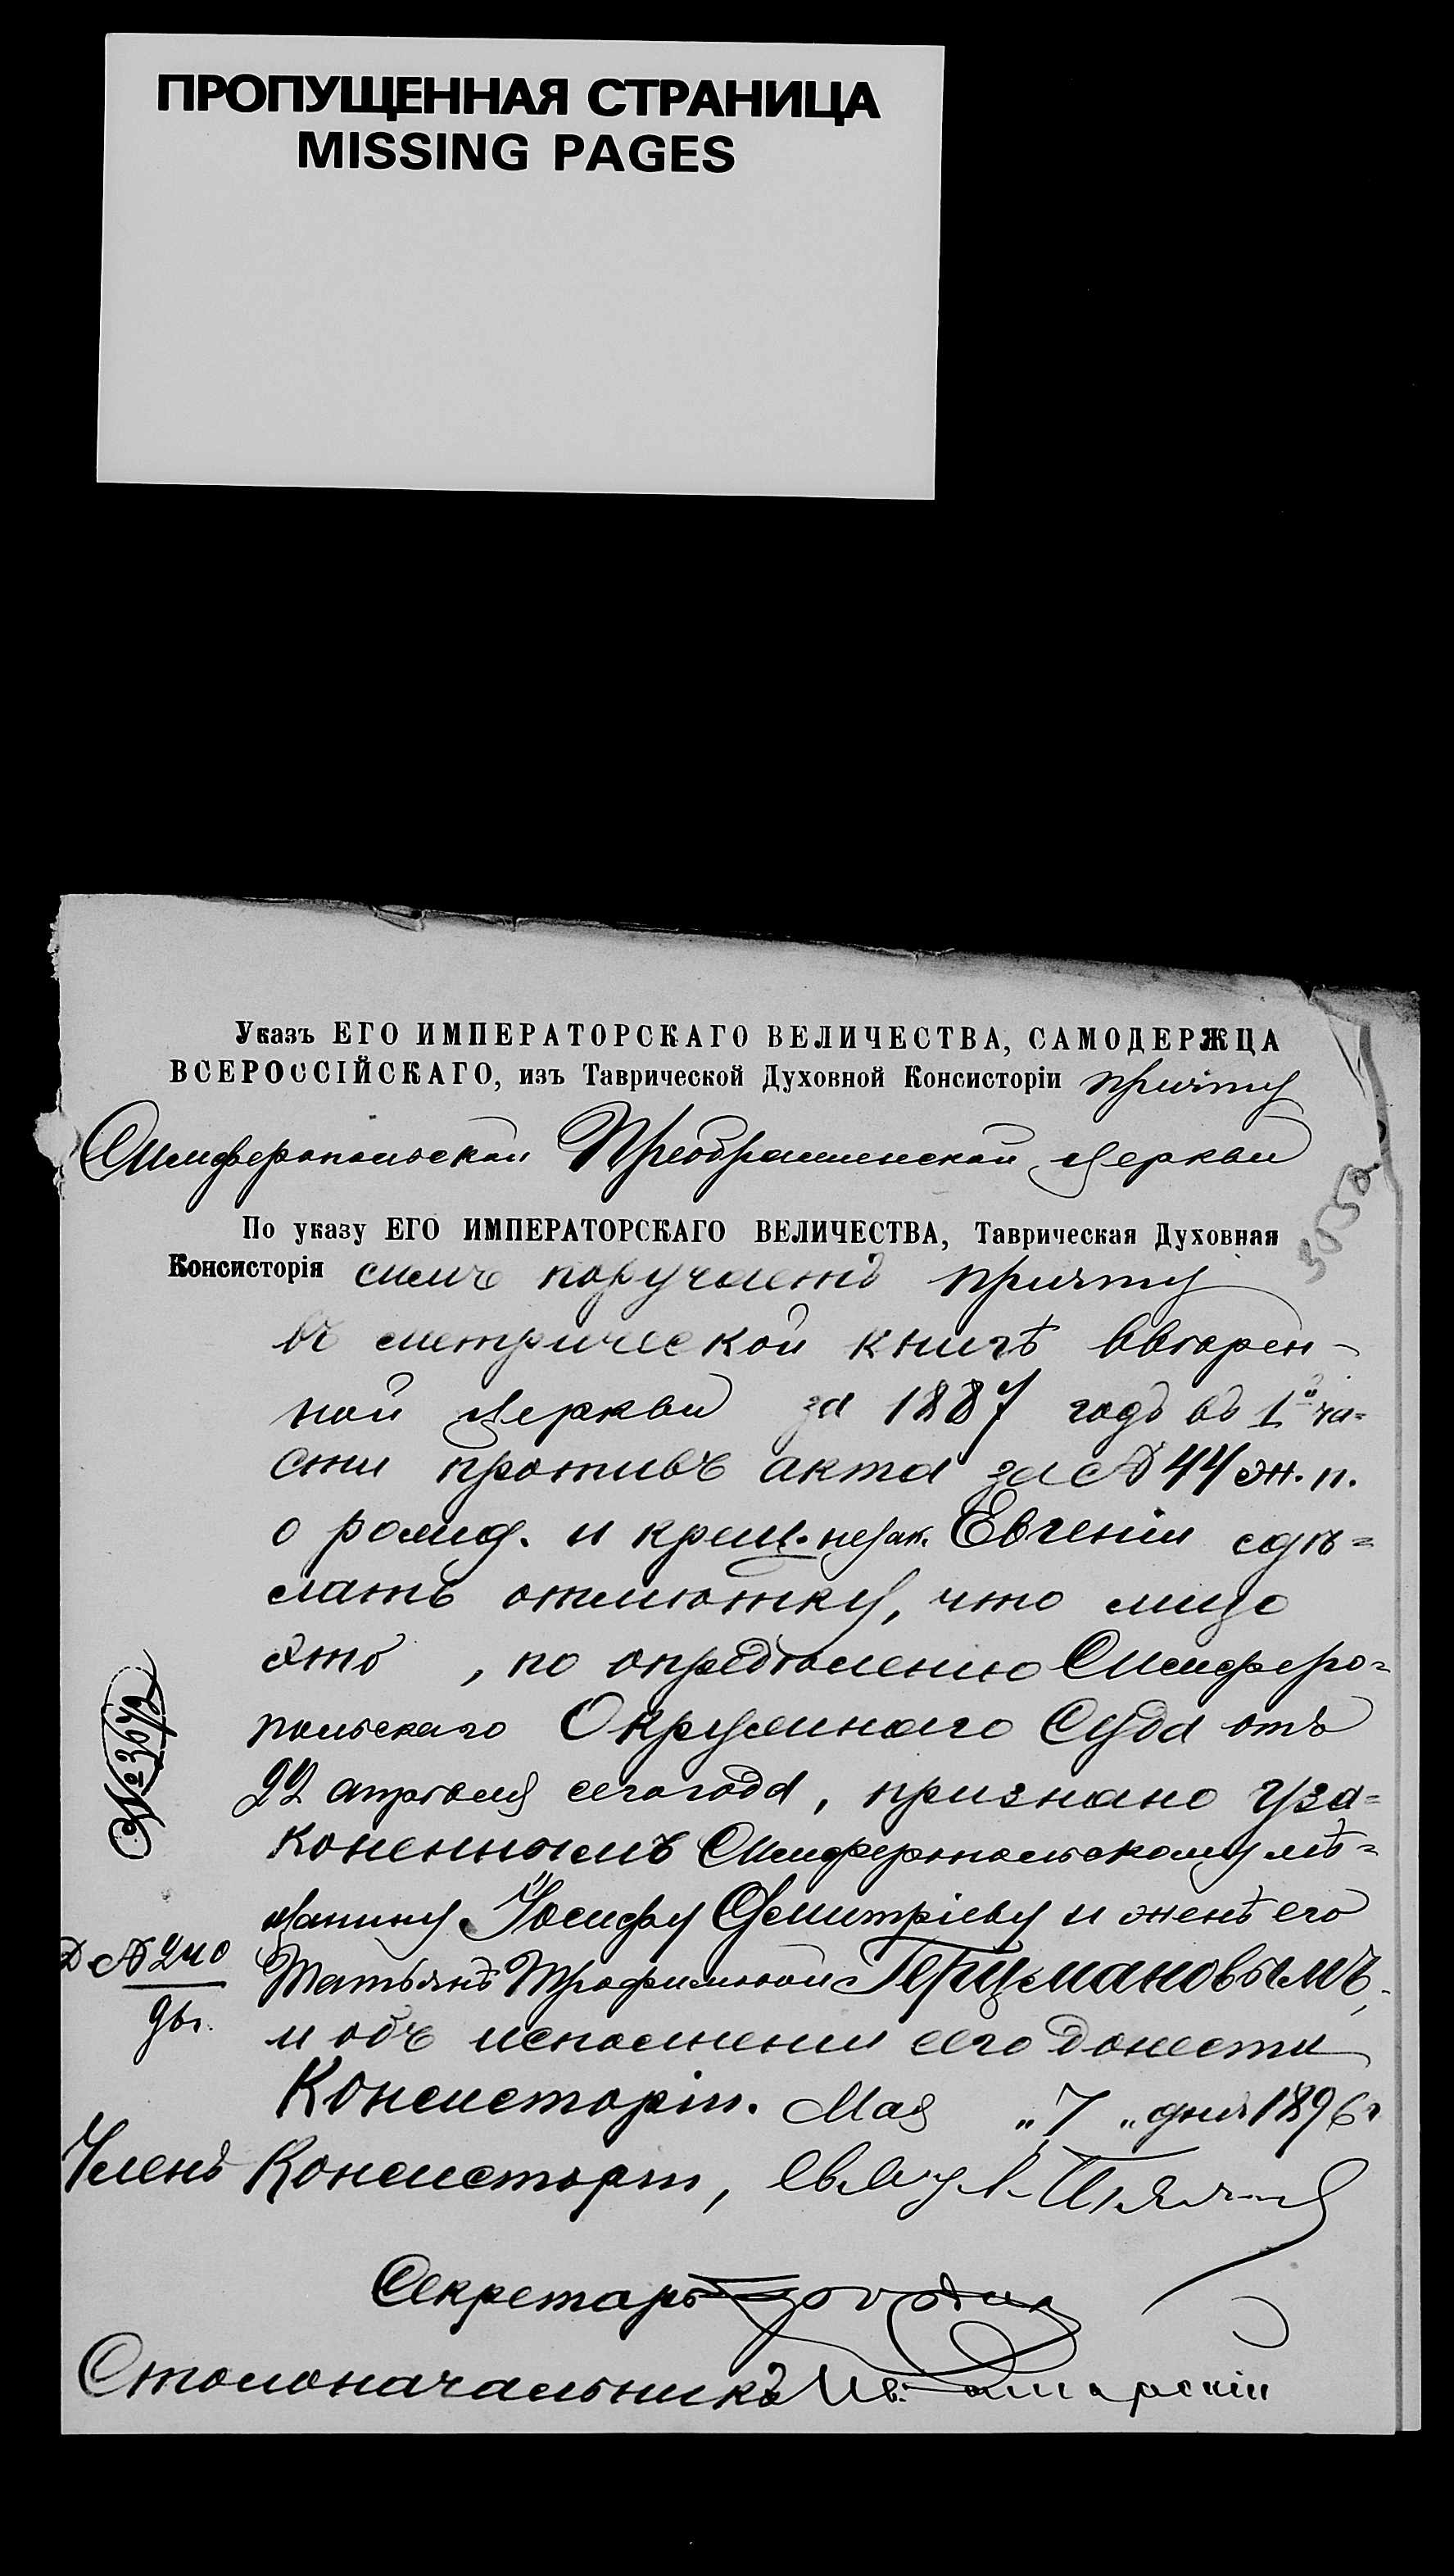 ПРОПУЩЕННАЯ СТРАНИЦА
MISSING PAGES
Указъ ЕГО ИМПЕРАТОРСКАГО ВЕЛИЧЕСТВА, САМОДЕРЖЦА
ВСЕРОССІЙСКАГО, изъ Таврической Духовной Консисторіи причту
Симферопольской Преображенской церкви
По указу ЕГО ИМПЕРАТОРСКАГО ВЕЛИЧЕСТВА, Таврическая Духовная
Консисторія симъ поручаетъ причту
въ метрической книгѣ ввѣрен-
ной церкви за 1887 годъ въ 1й ча=
сти противъ акта за № 44 ж. п.
о рожд. и крещ. незак. Евгеніи сдѣ=
лать отмѣтку, что лице
это, по опредѣленію Симферо=
польскаго Окружнаго Суда отъ
22 апрѣля сего года, признано уза=
коненнымъ Симферопольскому мѣ=
щанину Іосифу Дмитріеву и женѣ его
Татьянѣ Трофимовой Герцмановымъ,
и объ исполненіи сего донести
Консисторіи. Мая „7„ дня 1896 г
№ 3672
Д № 240
96 г.
Членъ Консисторіи,
Секретарь
Столоначальникъ Ив.